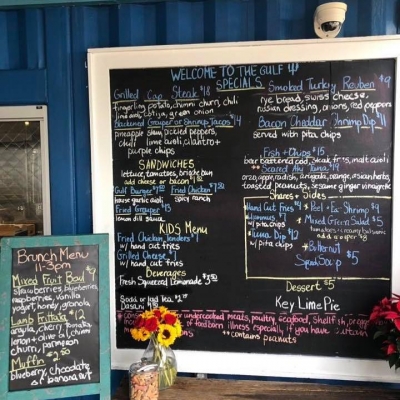 WELCOME TO THE GULF
SPECIALS
Grilled Cap Steak $18
fingerling potato, chimi churri, chili
lime aioli, cotija, green onion
Blackened Grouper or Shrimp Tacos $14
pineapple slaw, pickled peppers,
chili lime aioli, cilantro +
purple chips
SANDWICHES
lettuce, tomatoes, brioche bun
add cheese or bacon $1
Gulf Burger Fried Chicken
house garlic aioli spicy ranch
Fried Grouper $13
lemon dill sauce
KIDS MENU
Fried Chicken Tenders
w/ hand cut fries
Grilled Cheese
w/ hand cut fries
Beverages
Fresh Squeezed Lemonade
Soda or Iced Tea
Dasani
Smoked Turkey Reuben $9
rye bread, swiss cheese,
russian dressing, onions, red peppers
Bacon Cheddar Shrimp Dip $11
served with pita chips
Fish + Chips $15
beer battered cod, steak fries, malt aioli
** Seared Ahi Tuna
toasted peanuts, sesame ginger vinaigrette
Shares + Sides
Hand Cut Fries $4
Hummus
w/ pita chips
Tuna Dip $12
w/ pita chips
* Peel + Eat Shrimp $9
* Mixed Green Salad $5
* Butternut
Squash Soup $5
Dessert $5
Key Lime Pie
undercooked meats, poultry, seafood, shellfish, or eggs
of foodborn illness especially if you have certain
**contains peanuts
Brunch Menu
11-3pm
Mixed Fruit Bowl $9
strawberries, blueberries
raspberries, vanilla
yogurt, honey, granola
Lamb Frittata $12
arugula, cherry, tomato,
lemon + olive oil, chimi
churri, parmesan
Muffin $2.50
blueberry, chocolate
or banana nut